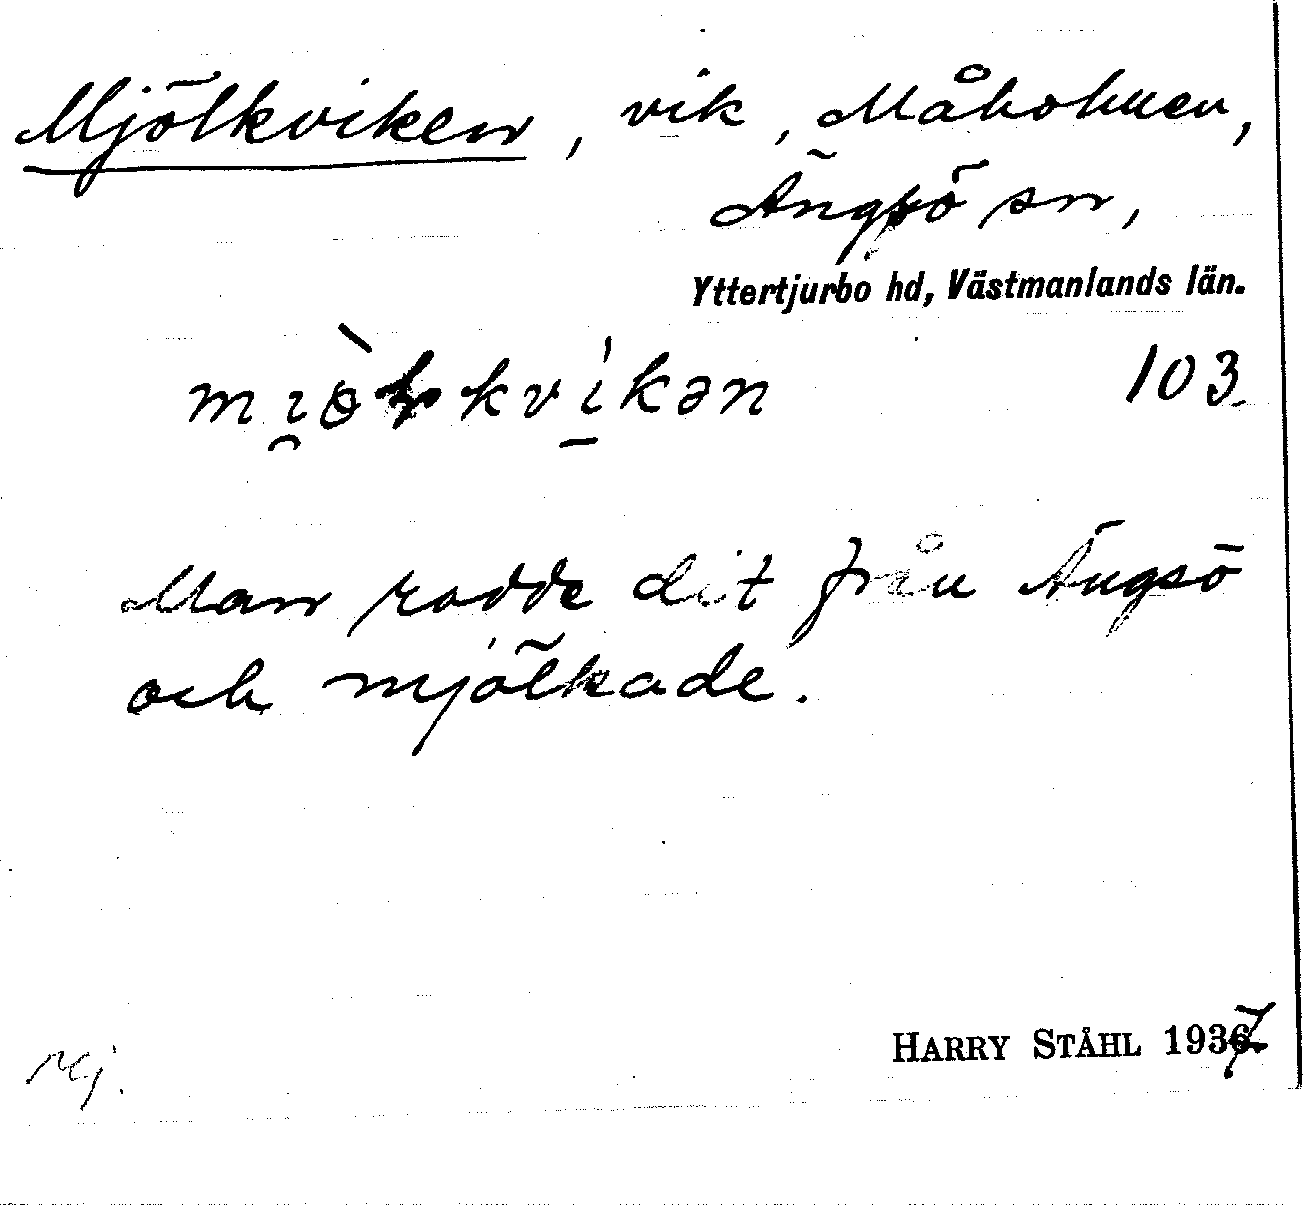 Mjölkviken, vik, Måholmen,
Ängsö sn,
Yttertjurbo hd, Västmanlands län.
103
Man rodde dit från Ängsö
och mjölkade.
HARRY STÅHL 1937
rej.